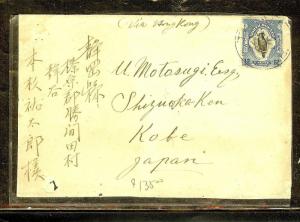 (Via Hong Kong)
静岡縣
榛原郡勝間田村
本杉祐太郎様
U. Motosugi, Esq.,
Shizuoka Ken
Kobe
Japan